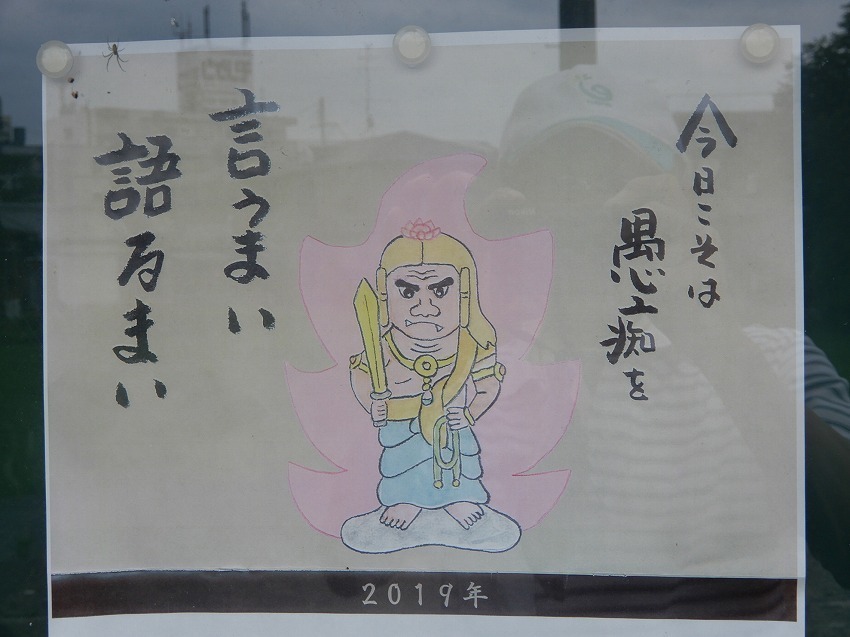 今日こそは
愚痴を
言うまい
語るまい
2019年